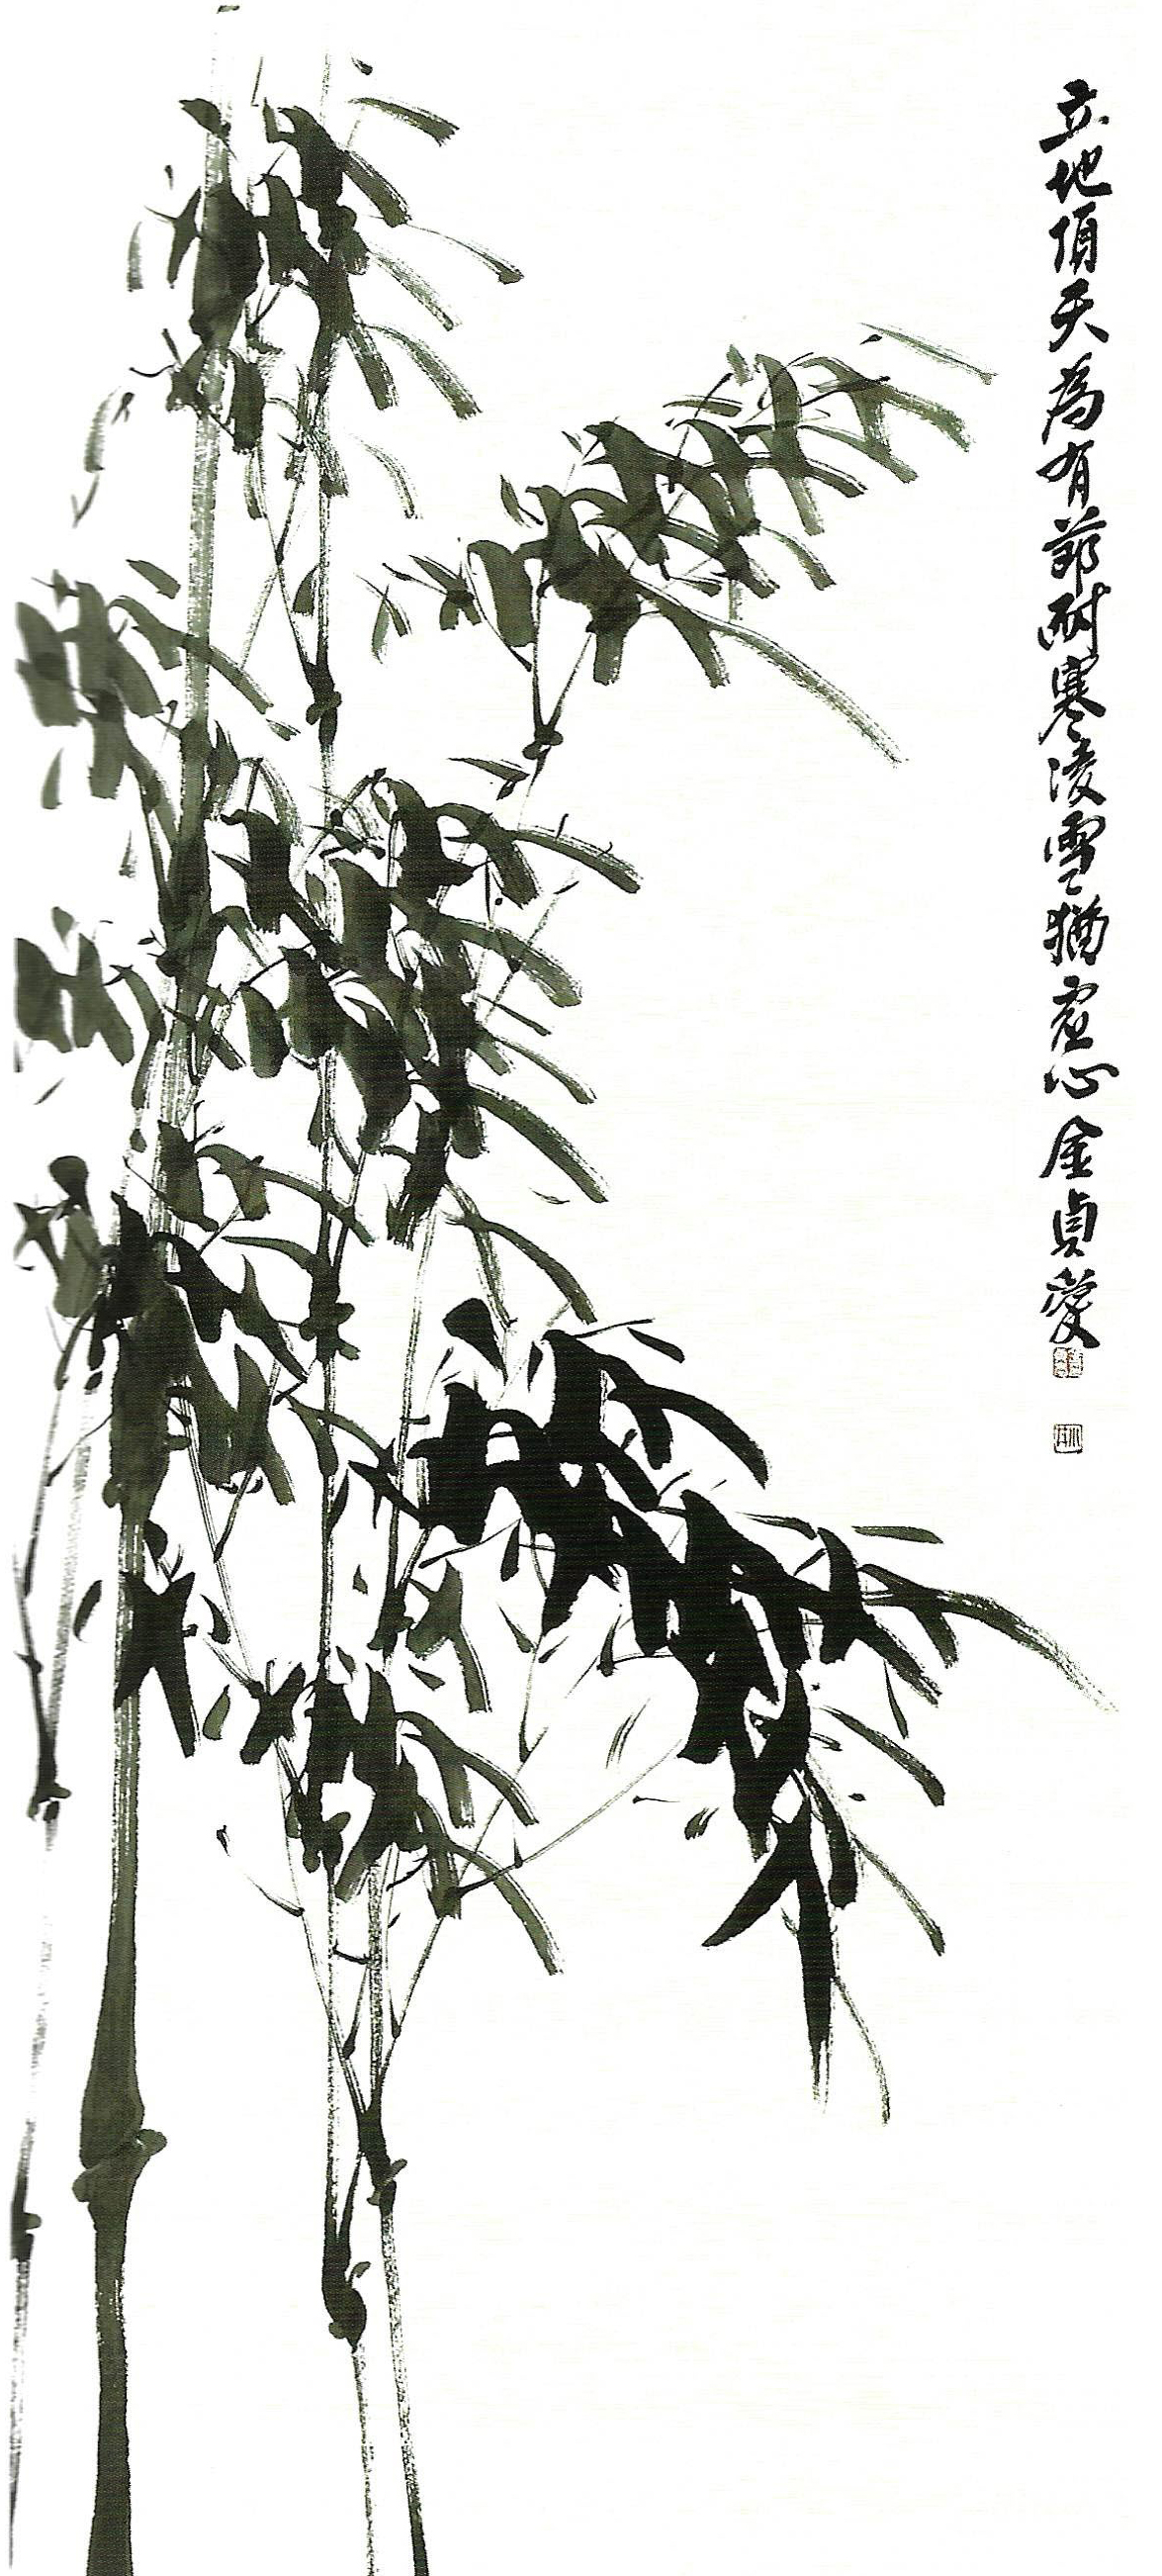 立地頂天為有節耐寒淩雪猶虛心金貞愛